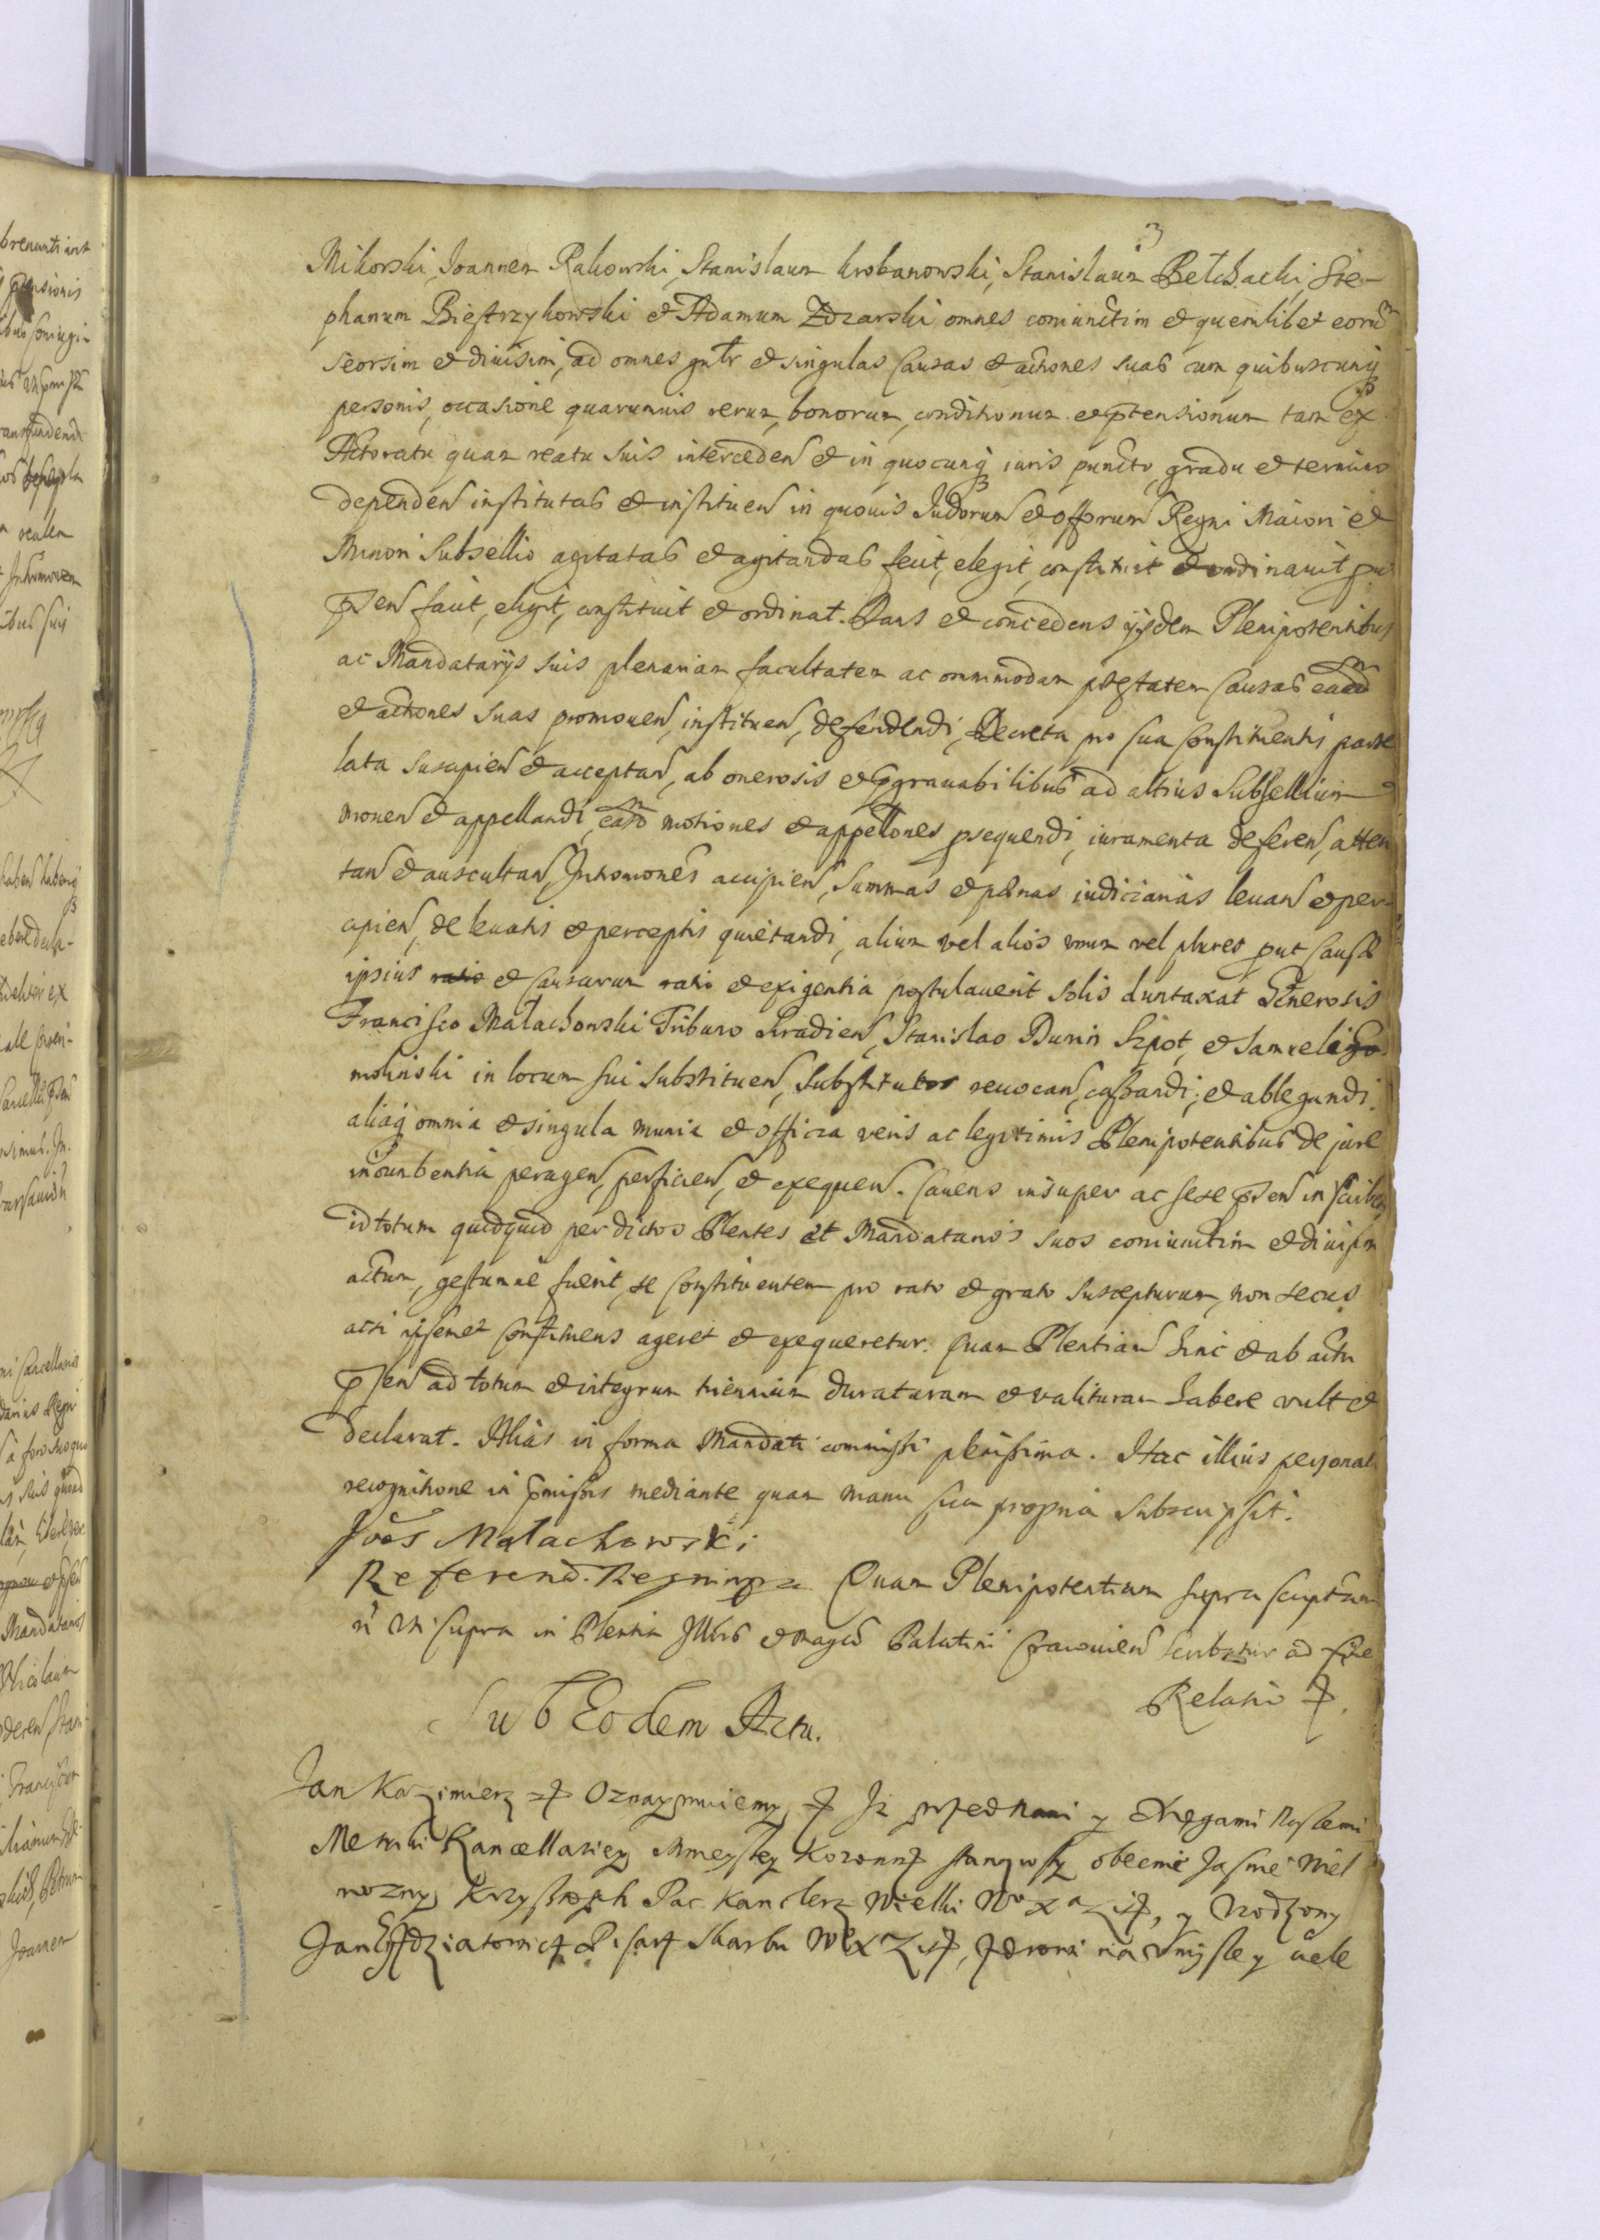 3
Mikorski, Joannem Rakowski, Stanislaum Krobanowski, Stanislaum Bełchacki, Ste-
phanum Biestrzykowski et Adamum Zdzarski omnes coniunctim et quemlibet eorum
seorsim et divisim, ad omnes gnlr et singulas Causas et actiones suas cum quibuscunq
personis, occasione quarumvis rerum, bonorum, conditionum et ptensionum tam ex
Actoratu quam reatu suis interceden et in quocunq iuris puncto, gradu et termino
dependen institutas et instituen in quovis Judiorum et offiorum Regni Maiori et
Minori Subsellio agitatas et agitandas fecit, elegit, constituit et ordinavit
psen facit, eligit, constituit et ordinat. Dans et concedens ijsdem Plenipotentibus
ac Mandatarijs suis plenariam facultatem ac omnimodam ptestatem Causas easd
et actiones suas promoven, instituen, defendendi, Decreta pro sua Constituentis parte
lata suscipien et acceptan, ab onerosis et ggravabilibus ad altius Subsellium
moven et appellandi, easd motiones et appellones psequendi, iuramenta deferen, atten
tan et auscultan, Intromones accipien, Summas et paenas iudiciarias levan et per
cipien, de levatis et perceptis quietandi, alium vel alios unum vel plures put Causae
ipsius et causarum ratio et exigentia postulaverit solis duntaxat Generosis
Francisco Małachowski Tribuno Siradien, Stanislao Dunin Szpot, et Samueli
molinski in locum sui substituen, substitutos revocan, cassandi, et ablegandi.
aliaq omnia et singula munia et officia veris ac legitimis Plenipotentibus de jure
incumbentia peragen, perficien, et exequen. Cavens insuper ac sese psen inscriben
id totum quidquid per dictos Plentes et Mandatarios suos coniunctim et divisim
actum, gestumve fuerit, se Constituentem pro rato et grato suscepturum, non secus
acsi ipsemet Constituens ageret et exequeretur. Quam Plentiam hinc et ab actu
psen ad totum et integrum triennium duraturam et valituram habere vult et
declarat. Alias in forma Mandati commissi plenissima. Hac illius personali
recognitione in pmissis mediante quam manu sua propria subscripsit.
Joes Małachowski
Referend. Regni mpa. Quam Plenipotentiam supra scriptam
uti supra in Plentia Illris et Magci Palatini Cracovien scribatur ad fine
Relatio
Sub Eodem Actu.
Jan Kazimierz Oznaymuiemy Iz przed Nami y Xięgami Naszemi
Metriki Kancellariey Mnieyszey Koronney stanąwszy obecnie Jasnie Wiel
mozny Krzysztoph Pac Kanclerz Wielki W X L, y Urodzony
Jan Pisarz Skarbu W X L, zdrowi na umysle y ciele